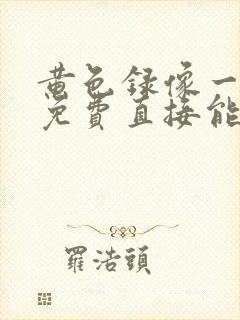 黄色録像一
免費直接能
羅浩頭